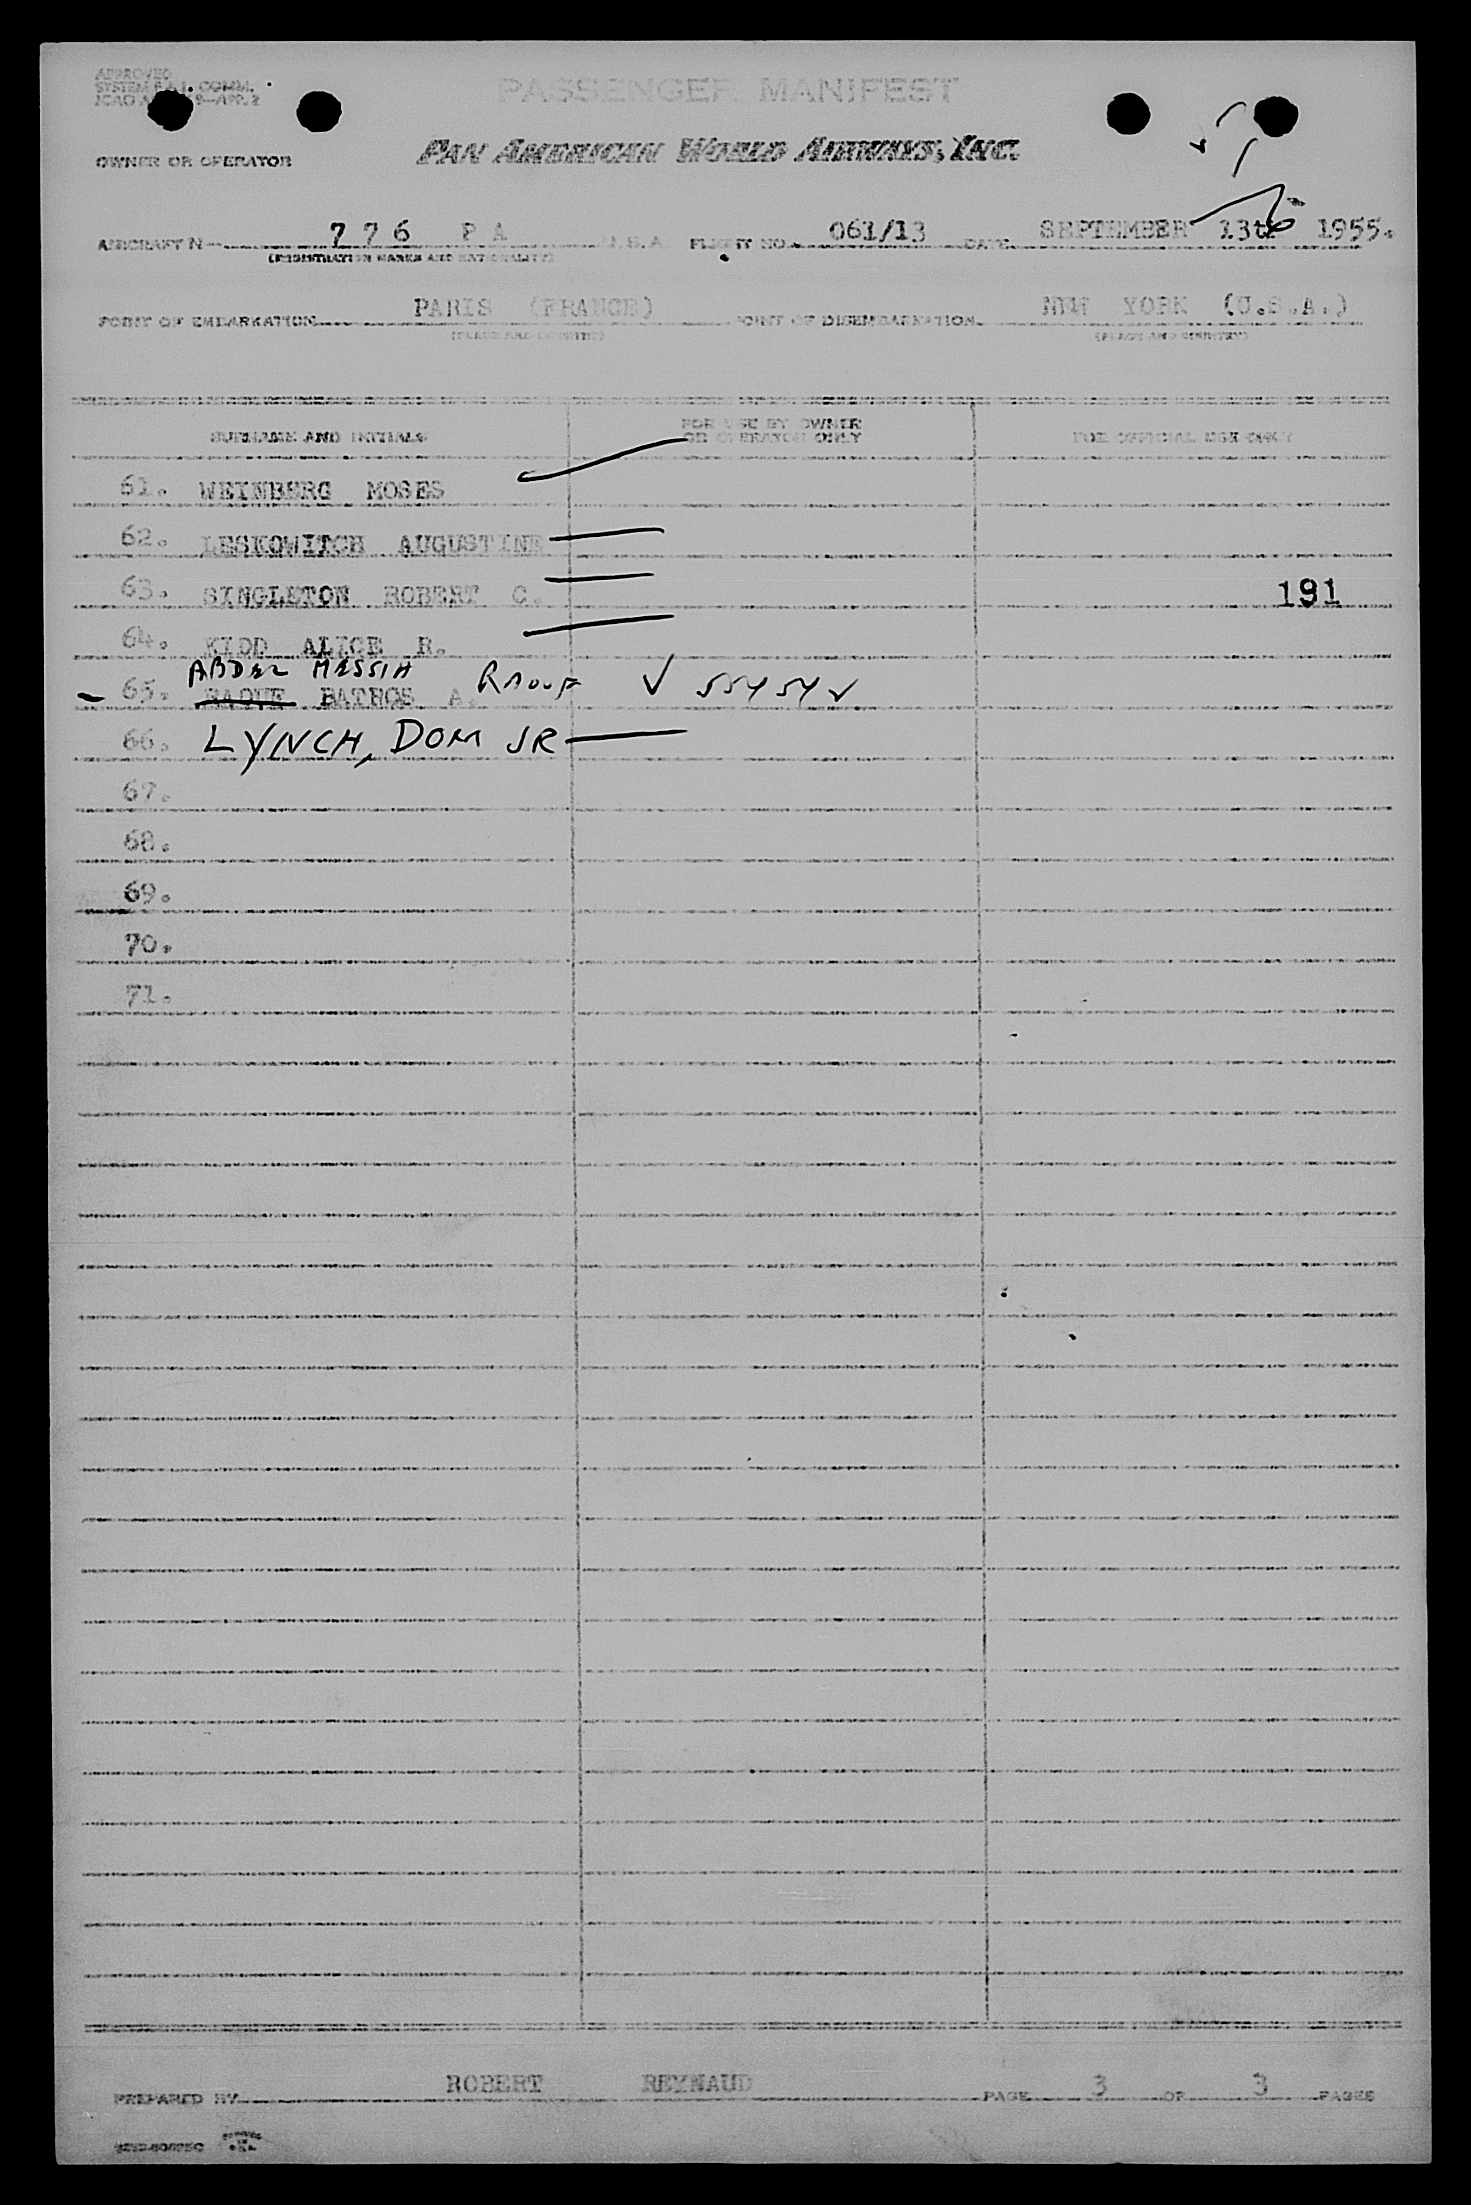 APPROVED
SYSTEM F.A.L. COMM.
PASSENGER MANIFEST
OWNER OR OPERATOR PAN AMERICAN WORLD AIRWAYS, INC.
AIRCRAFT N 776 PA U.S.A. FLIGHT NO. 061/13 DATE SEPTEMBER 13th 1955.
(REGISTRATION MARKS AND NATIONALITY)
POINT OF EMBARKATION PARIS (FRANCE) POINT OF DISEMBARKATION NEW YORK (U.S.A.)
(PLACE AND COUNTRY) (PLACE AND COUNTRY)
SURNAME AND INITIALS FOR USE BY OWNER OR OPERATOR ONLY FOR OFFICIAL USE ONLY
61. WEINBERG MOSES
62. LESKOWITCH AUGUSTINE
63. SINGLETON ROBERT C. 191
64. KIDD ALICE R.
ABDEL MESSIH RAOUF
65. BATROS A. ✓ 55454 ✓
66. LYNCH, DOM JR
67.
68.
69.
70.
71.
PREPARED BY ROBERT REYNAUD PAGE 3 OF 3 PAGES